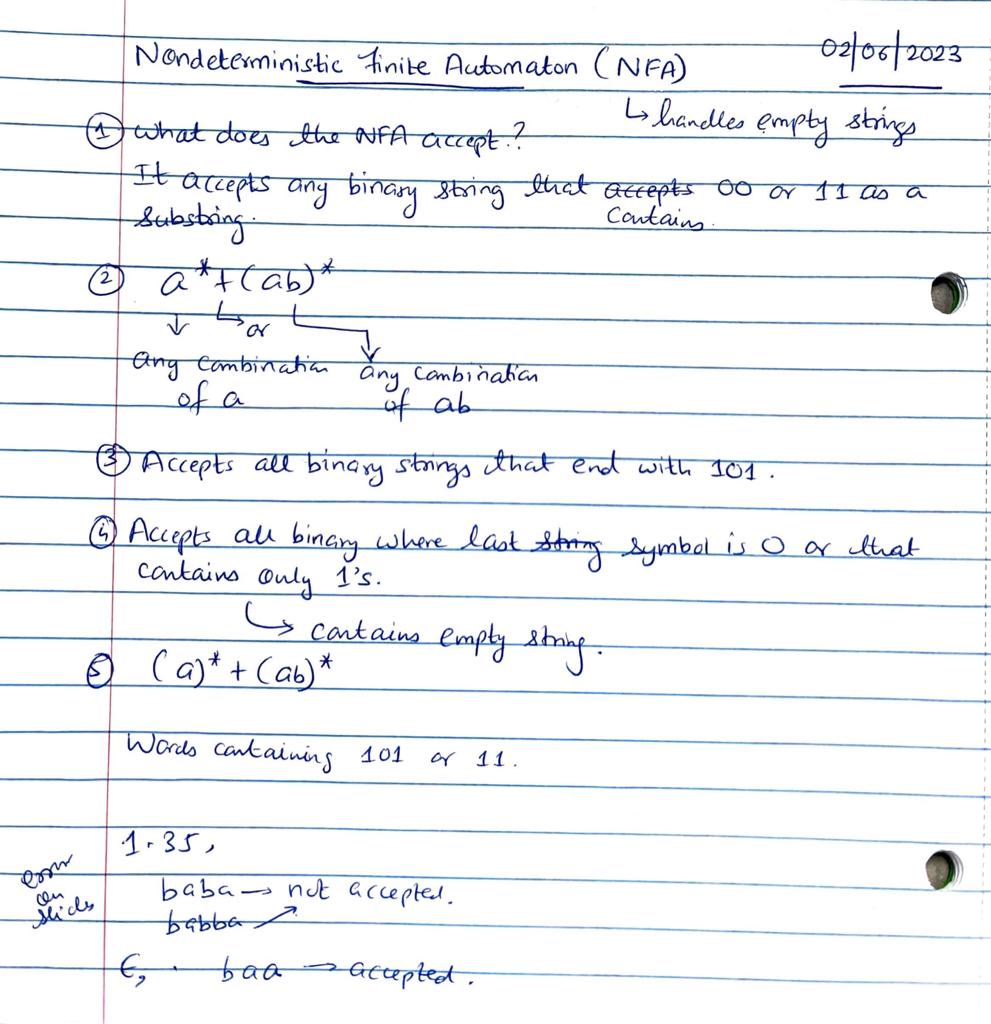 Nondeterministic Finite Automaton (NFA) 02/06/2023
↳ handles empty strings
① What does the NFA accept?
It accepts any binary string that accepts 00 or 11 as a
contains.
substring.
② a* + (ab)*
↓ ↳ or
any combination any combination
of a of ab
③ Accepts all binary strings that end with 101.
④ Accepts all binary where last string symbol is 0 or that
contains only 1's.
↳ contains empty string.
⑤ (a)* + (ab)*
Words containing 101 or 11.
1.35,
error
on
slides
baba → not accepted.
babba ↗
ϵ, . baa → accepted.